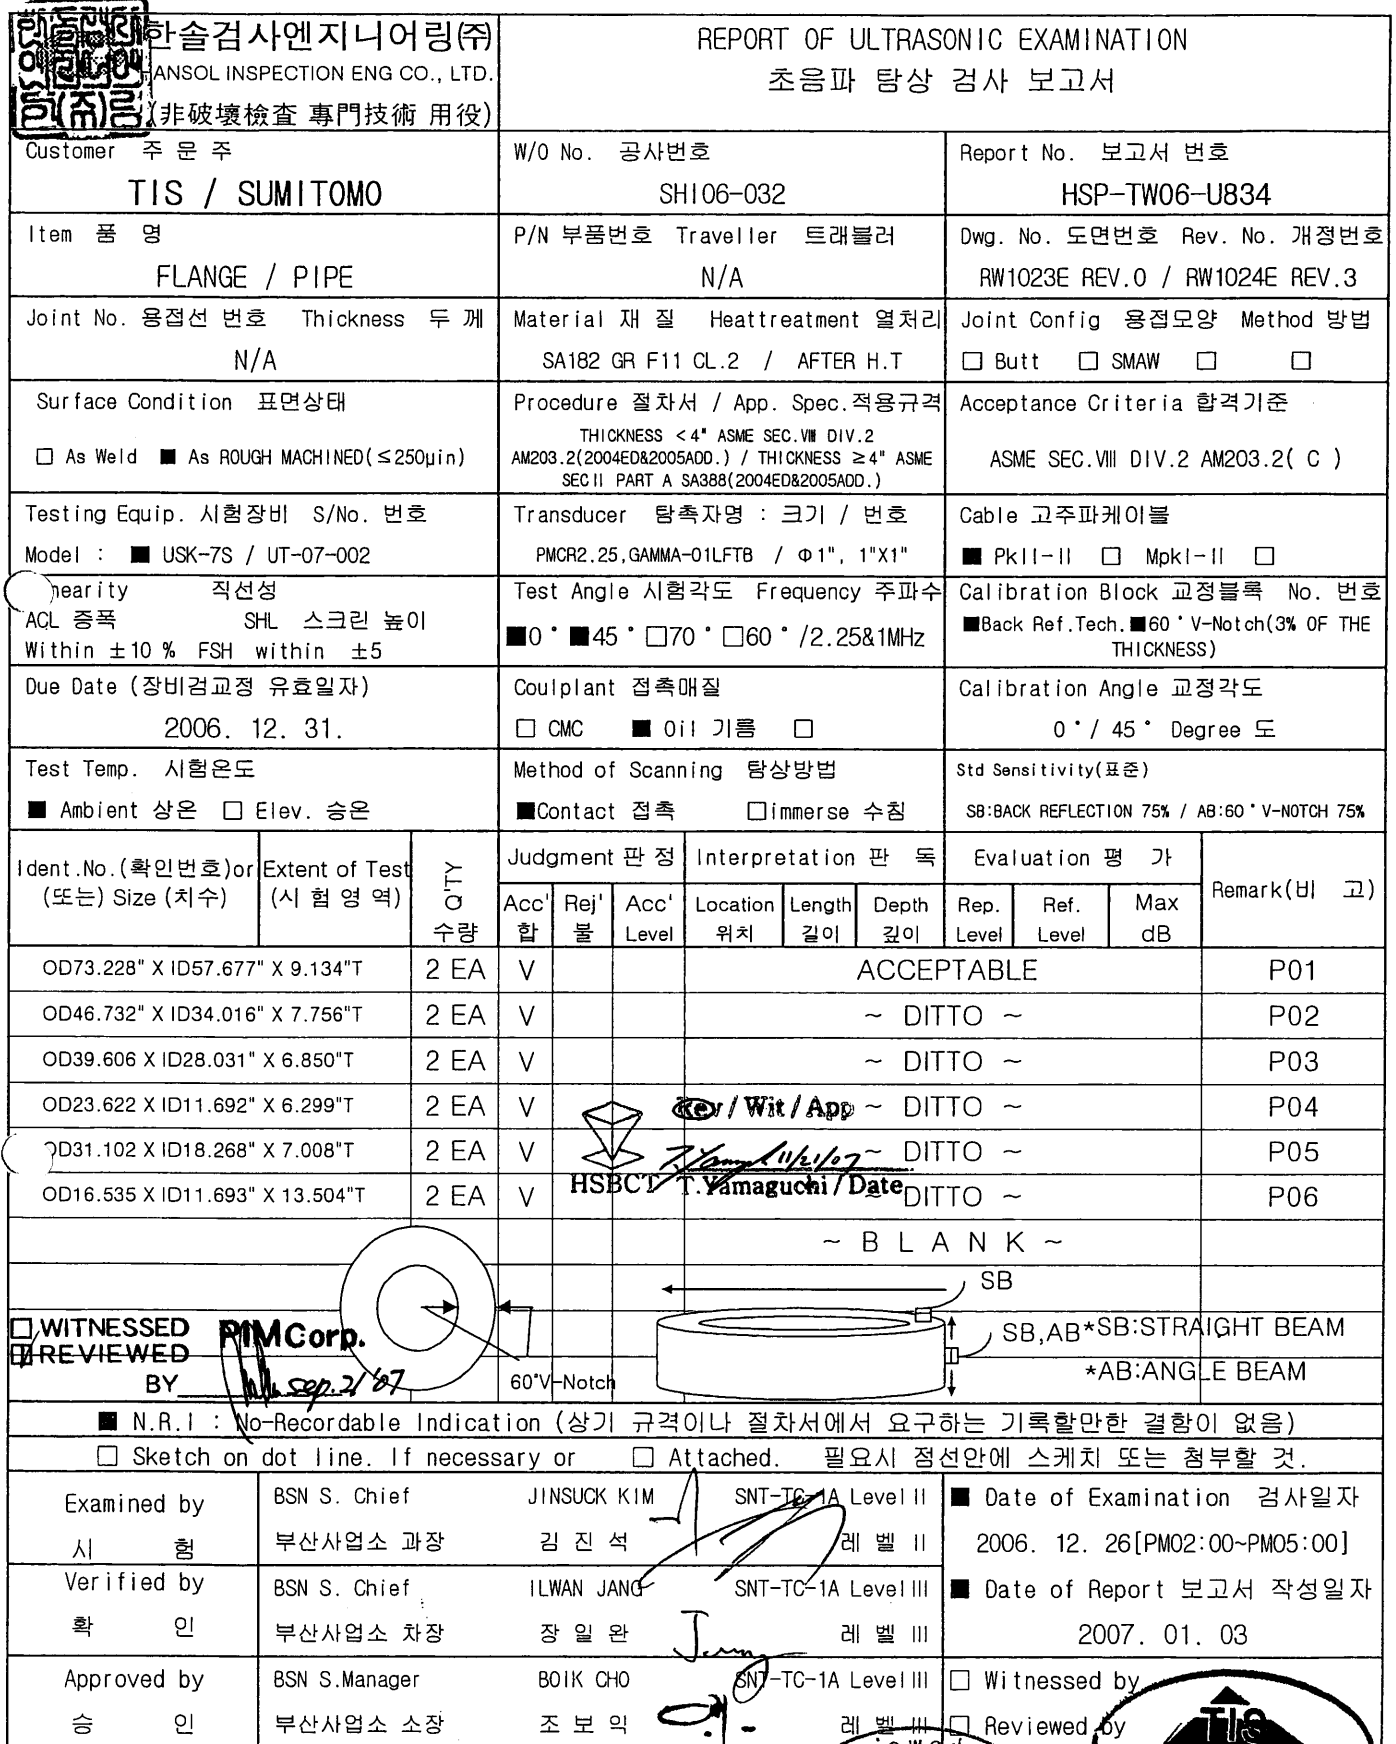 한솔검사엔지니어링(주)
HANSOL INSPECTION ENG CO., LTD.
(非破壞檢査 專門技術 用役)
REPORT OF ULTRASONIC EXAMINATION
초음파 탐상 검사 보고서
Customer 주 문 주
TIS / SUMITOMO
W/O No. 공사번호
SHI06-032
Report No. 보고서 번호
HSP-TW06-U834
Item 품 명
FLANGE / PIPE
P/N 부품번호 Traveller 트래블러
N/A
Dwg. No. 도면번호 Rev. No. 개정번호
RW1023E REV.0 / RW1024E REV.3
Joint No. 용접선 번호 Thickness 두 께
N/A
Material 재 질 Heattreatment 열처리
SA182 GR F11 CL.2 / AFTER H.T
Joint Config 용접모양 Method 방법
□ Butt □ SMAW □ □
Surface Condition 표면상태
□ As Weld ■ As ROUGH MACHINED(≤250μin)
Procedure 절차서 / App. Spec.적용규격
THICKNESS <4" ASME SEC.Ⅷ DIV.2
AM203.2(2004ED&2005ADD.) / THICKNESS ≥4" ASME
SECⅡ PART A SA388(2004ED&2005ADD.)
Acceptance Criteria 합격기준
ASME SEC.Ⅷ DIV.2 AM203.2( C )
Testing Equip. 시험장비 S/No. 번호
Model : ■ USK-7S / UT-07-002
Transducer 탐촉자명 : 크기 / 번호
PMCR2.25,GAMMA-01LFTB / Φ1", 1"X1"
Cable 고주파케이블
■ PkII-II □ MpkI-II □
nearity 직선성
ACL 증폭 SHL 스크린 높이
Within ±10 % FSH within ±5
Test Angle 시험각도 Frequency 주파수
■0˚ ■45˚ □70˚ □60˚ /2.25&1MHz
Calibration Block 교정블록 No. 번호
■Back Ref.Tech. ■60˚V-Notch(3% OF THE
THICKNESS)
Due Date (장비검교정 유효일자)
2006. 12. 31.
Coulplant 접촉매질
□ CMC ■ Oil 기름 □
Calibration Angle 교정각도
0˚/ 45˚ Degree 도
Test Temp. 시험온도
■ Ambient 상온 □ Elev. 승온
Method of Scanning 탐상방법
■Contact 접촉 □immerse 수침
Std Sensitivity(표준)
SB:BACK REFLECTION 75% / AB:60˚V-NOTCH 75%
Ident.No.(확인번호)or
(또는) Size (치수)
Extent of Test
(시 험 영 역)
Q'TY
수량
Judgment 판 정
Interpretation 판 독
Evaluation 평 가
Remark(비 고)
Acc' Rej' Acc' Location Length Depth Rep. Ref. Max
합 불 Level 위치 길이 깊이 Level Level dB
OD73.228" X ID57.677" X 9.134"T 2 EA V ACCEPTABLE P01
OD46.732" X ID34.016" X 7.756"T 2 EA V ~ DITTO ~ P02
OD39.606 X ID28.031" X 6.850"T 2 EA V ~ DITTO ~ P03
OD23.622 X ID11.692" X 6.299"T 2 EA V ~ DITTO ~ P04
Rev / Wit / App
OD31.102 X ID18.268" X 7.008"T 2 EA V ~ DITTO ~ P05
T. Yamaguchi 11/21/07
HSBCT T.Yamaguchi / Date
OD16.535 X ID11.693" X 13.504"T 2 EA V DITTO ~ P06
~ B L A N K ~
SB
SB,AB*SB:STRAIGHT BEAM
*AB:ANGLE BEAM
60˚V-Notch
□ WITNESSED
☑ REVIEWED
PIMCorp.
BY Sep. 21 '07
■ N.R.I : No-Recordable Indication (상기 규격이나 절차서에서 요구하는 기록할만한 결함이 없음)
□ Sketch on dot line. If necessary or □ Attached. 필요시 점선안에 스케치 또는 첨부할 것.
Examined by
시 험
BSN S. Chief JINSUCK KIM SNT-TC-1A Level II
부산사업소 과장 김 진 석 레 벨 II
■ Date of Examination 검사일자
2006. 12. 26[PM02:00~PM05:00]
Verified by
확 인
BSN S. Chief ILWAN JANG SNT-TC-1A Level III
부산사업소 차장 장 일 완 레 벨 III
■ Date of Report 보고서 작성일자
2007. 01. 03
Approved by
승 인
BSN S.Manager BOIK CHO SNT-TC-1A Level III
부산사업소 소장 조 보 익 레 벨 III
□ Witnessed by
□ Reviewed by
TIS